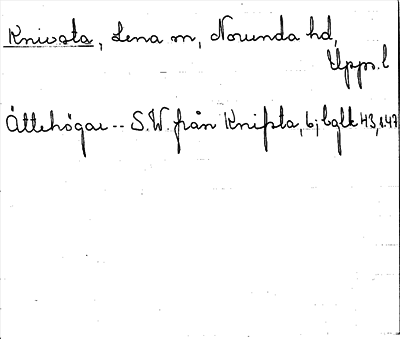 Knivsta, Lena sn, Norunda hd,
Upps. l
Ättehögar -- S.W. från Knifsta, b; lglk H3, s.47